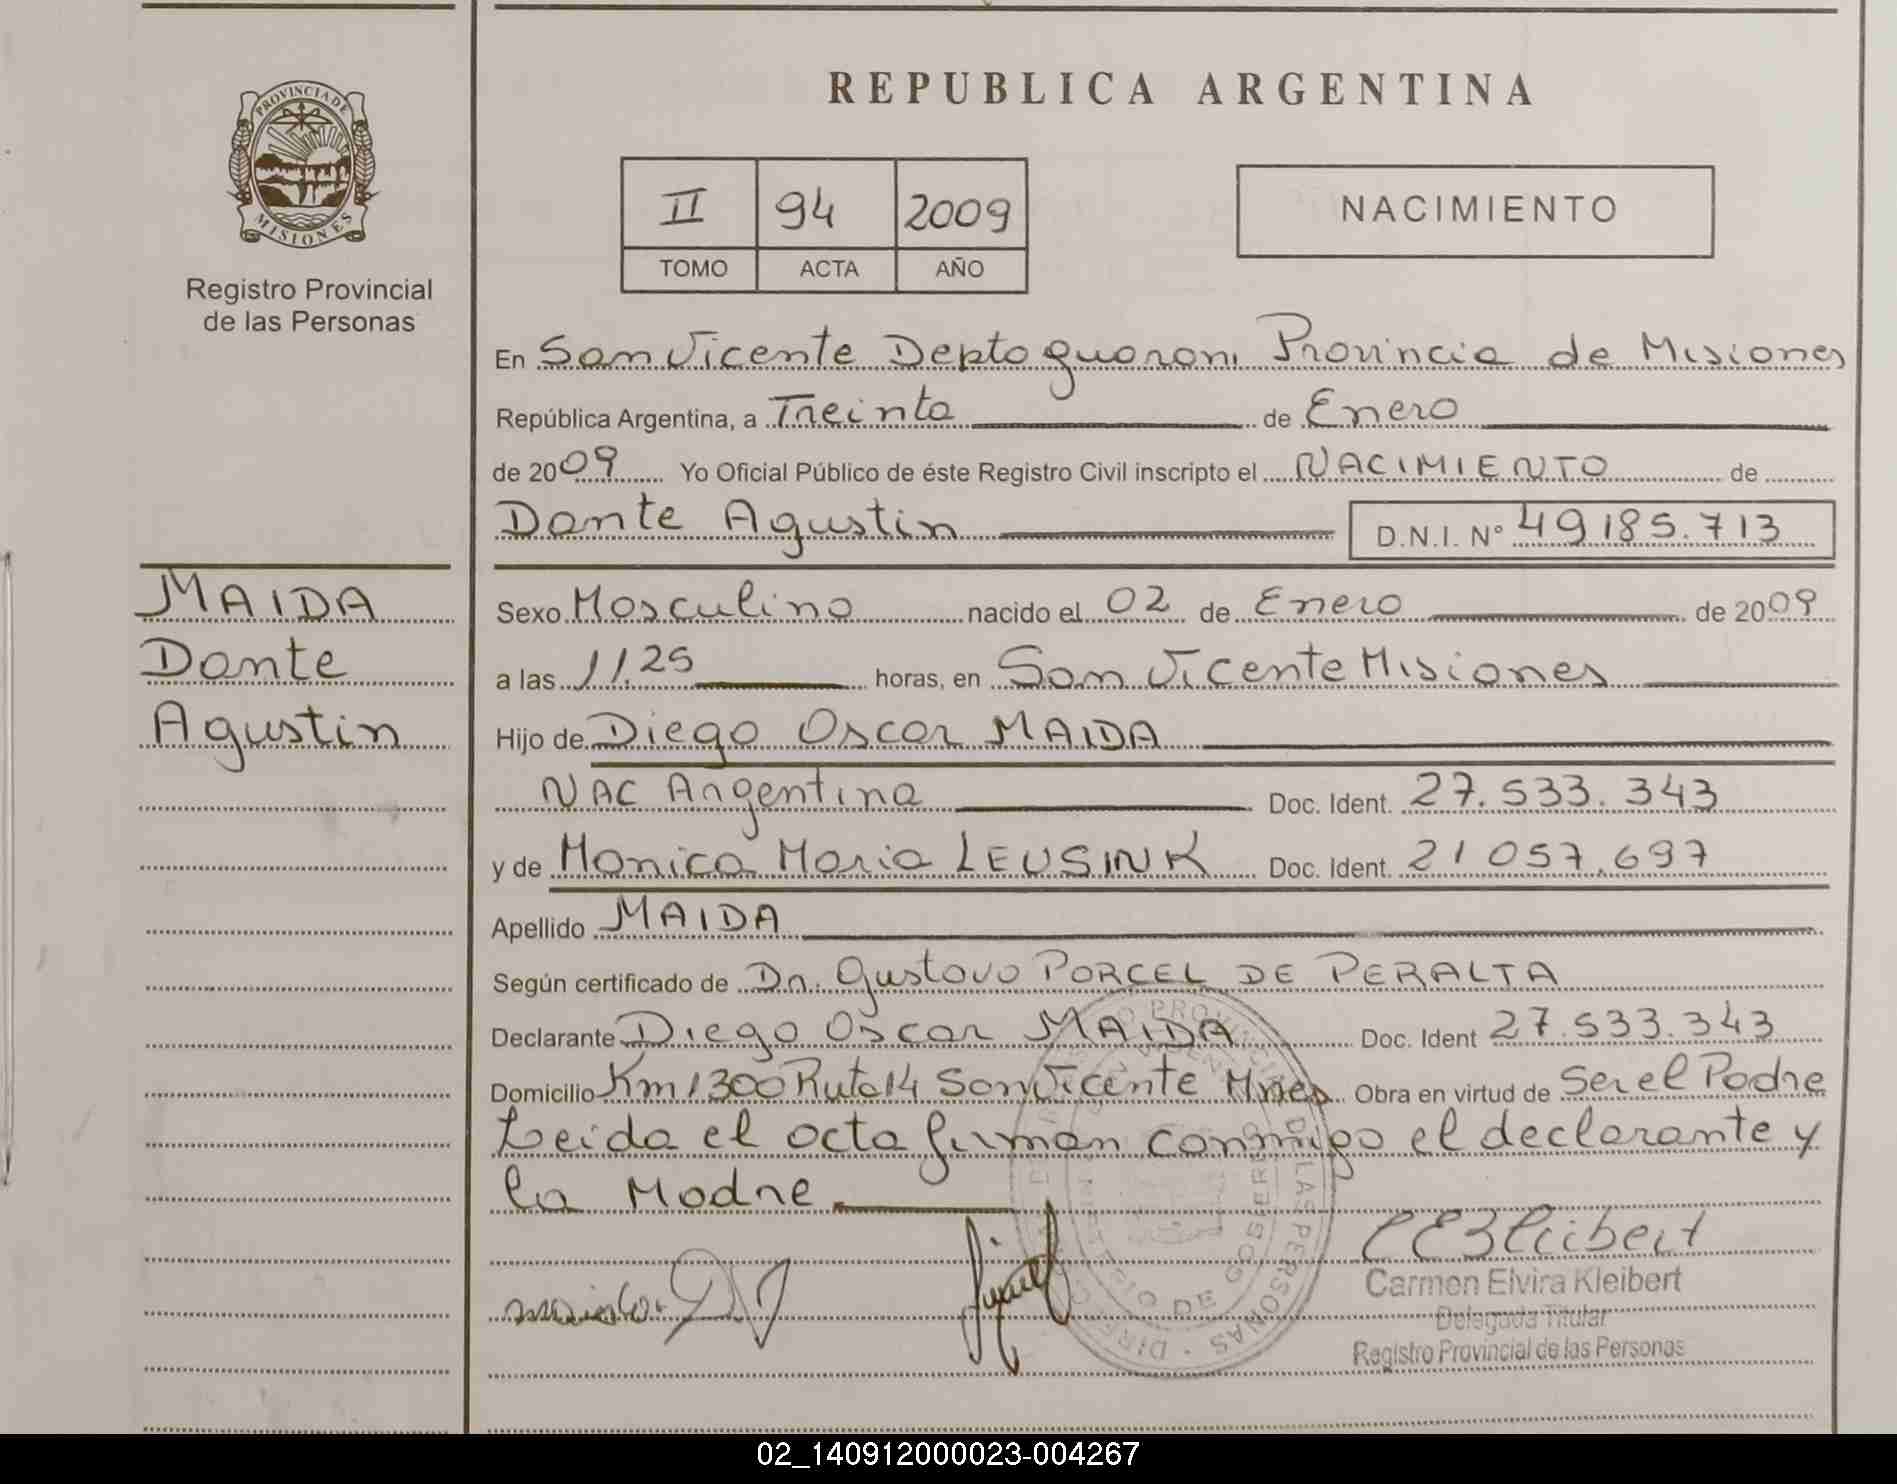 REPUBLICA ARGENTINA
PROVINCIA DE
MISIONES
Registro Provincial
de las Personas
II 94 2009
TOMO ACTA AÑO
NACIMIENTO
En San Vicente Depto guarani Provincia de Misiones
República Argentina, a Treinta de Enero
de 2009 Yo Oficial Público de éste Registro Civil inscripto el NACIMIENTO de
Dante Agustin D.N.I. Nº 49185.713
MAIDA
Dante
Agustin
Sexo Masculino nacido el 02 de Enero de 2009
a las 11.25 horas, en San Vicente Misiones
Hijo de Diego Oscar MAIDA
NAC Argentina Doc. Ident. 27.533.343
y de Monica Maria LEUSINK Doc. Ident. 21057.697
Apellido MAIDA
Según certificado de Dr. Gustavo PORCEL DE PERALTA
Declarante Diego Oscar MAIDA Doc. Ident 27.533.343
Domicilio Km 1300 Ruta 14 San Vicente Mnes Obra en virtud de Ser el Padre
Leida el acta firman conmigo el declarante y
la Madre
CEKleibert
Carmen Elvira Kleibert
Delegada Titular
Registro Provincial de las Personas
02_140912000023-004267